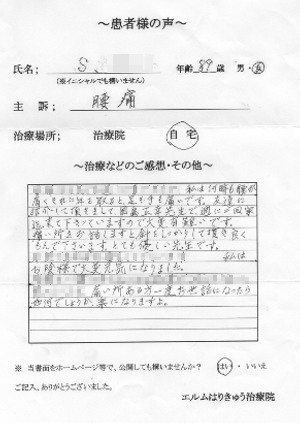 ～患者様の声～
氏名: S.
年齢 89 歳 男・女
(※イニシャルでも構いません)
主 訴: 腰痛
治療場所; 治療院 自宅
～治療などのご感想・その他～
私は何時も腰が
痛くそれに年を取ると足も手も痛いです。友達に
紹介して頂きまして 先生で週に 回家
迄来て下さいますので大変有難いです。
痛い所を と針をしっかりして頂き良く
もんで下さいます とても優しい先生です。
私は
お陰様で大変元気になりました。
痛い所ある方一度お世話になったら
如何でしょうか 楽になりますよ。
※ 当書面をホームページ等で、公開しても構いませんか? はい・いいえ
ご記入、ありがとうございました。
エルムはりきゅう治療院